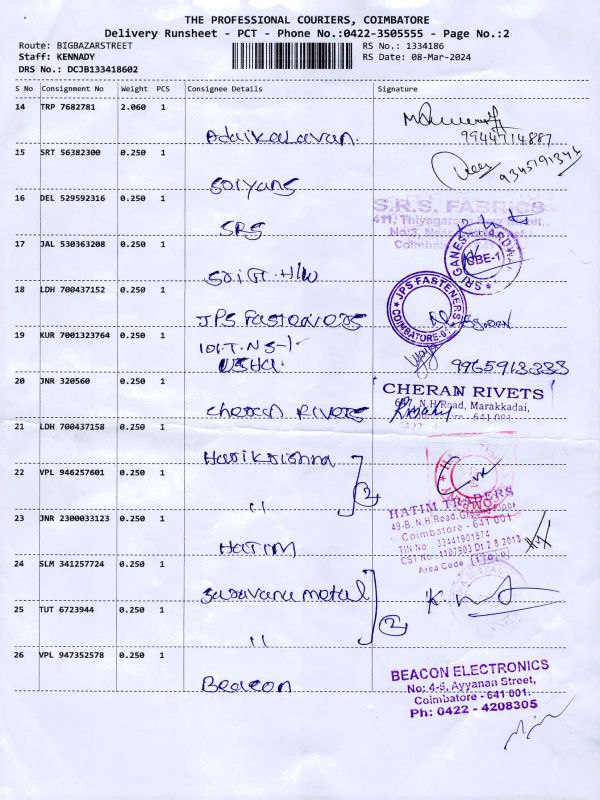 THE PROFESSIONAL COURIERS, COIMBATORE
Delivery Runsheet - PCT - Phone No.:0422-3505555 - Page No.:2
Route: BIGBAZARSTREET RS No.: 1334186
Staff: KENNADY RS Date: 08-Mar-2024
DRS No.: DCJB133418602
S No Consignment No Weight PCS Consignee Details Signature
14 TRP 7682781 2.060 1
Adaikalavan
9944714887
15 SRT 56382300 0.250 1
Soiyans
9345191341
16 DEL 529592316 0.250 1
SRS
S.R.S. FABRICS
17 JAL 530363208 0.250 1
Sri G. H/W
SRI GANESH HARDWARE
CBE-1
18 LDH 700437152 0.250 1
JPS Fasteners
JPS FASTENERS
COIMBATORE-01
19 KUR 7001323764 0.250 1
USHA
9965913333
20 JNR 320560 0.250 1
Cheran Rivets
CHERAN RIVETS
N.H.Road, Marakkadai,
21 LDH 700437158 0.250 1
Harikrishna
22 VPL 946257601 0.250 1
"
2
23 JNR 2300033123 0.250 1
HATIM
HATIM TRADERS
49-B, N.H.Road, Ground Floor
Coimbatore - 641 001
TIN No 33441901874
CST No 1107903 Dt 2.5.2013
Area Code
24 SLM 341257724 0.250 1
Saravana metal
25 TUT 6723944 0.250 1
"
2
26 VPL 947352578 0.250 1
Beacon
BEACON ELECTRONICS
No: 4-5, Ayyanan Street,
Coimbatore - 641 001.
Ph: 0422 - 4208305